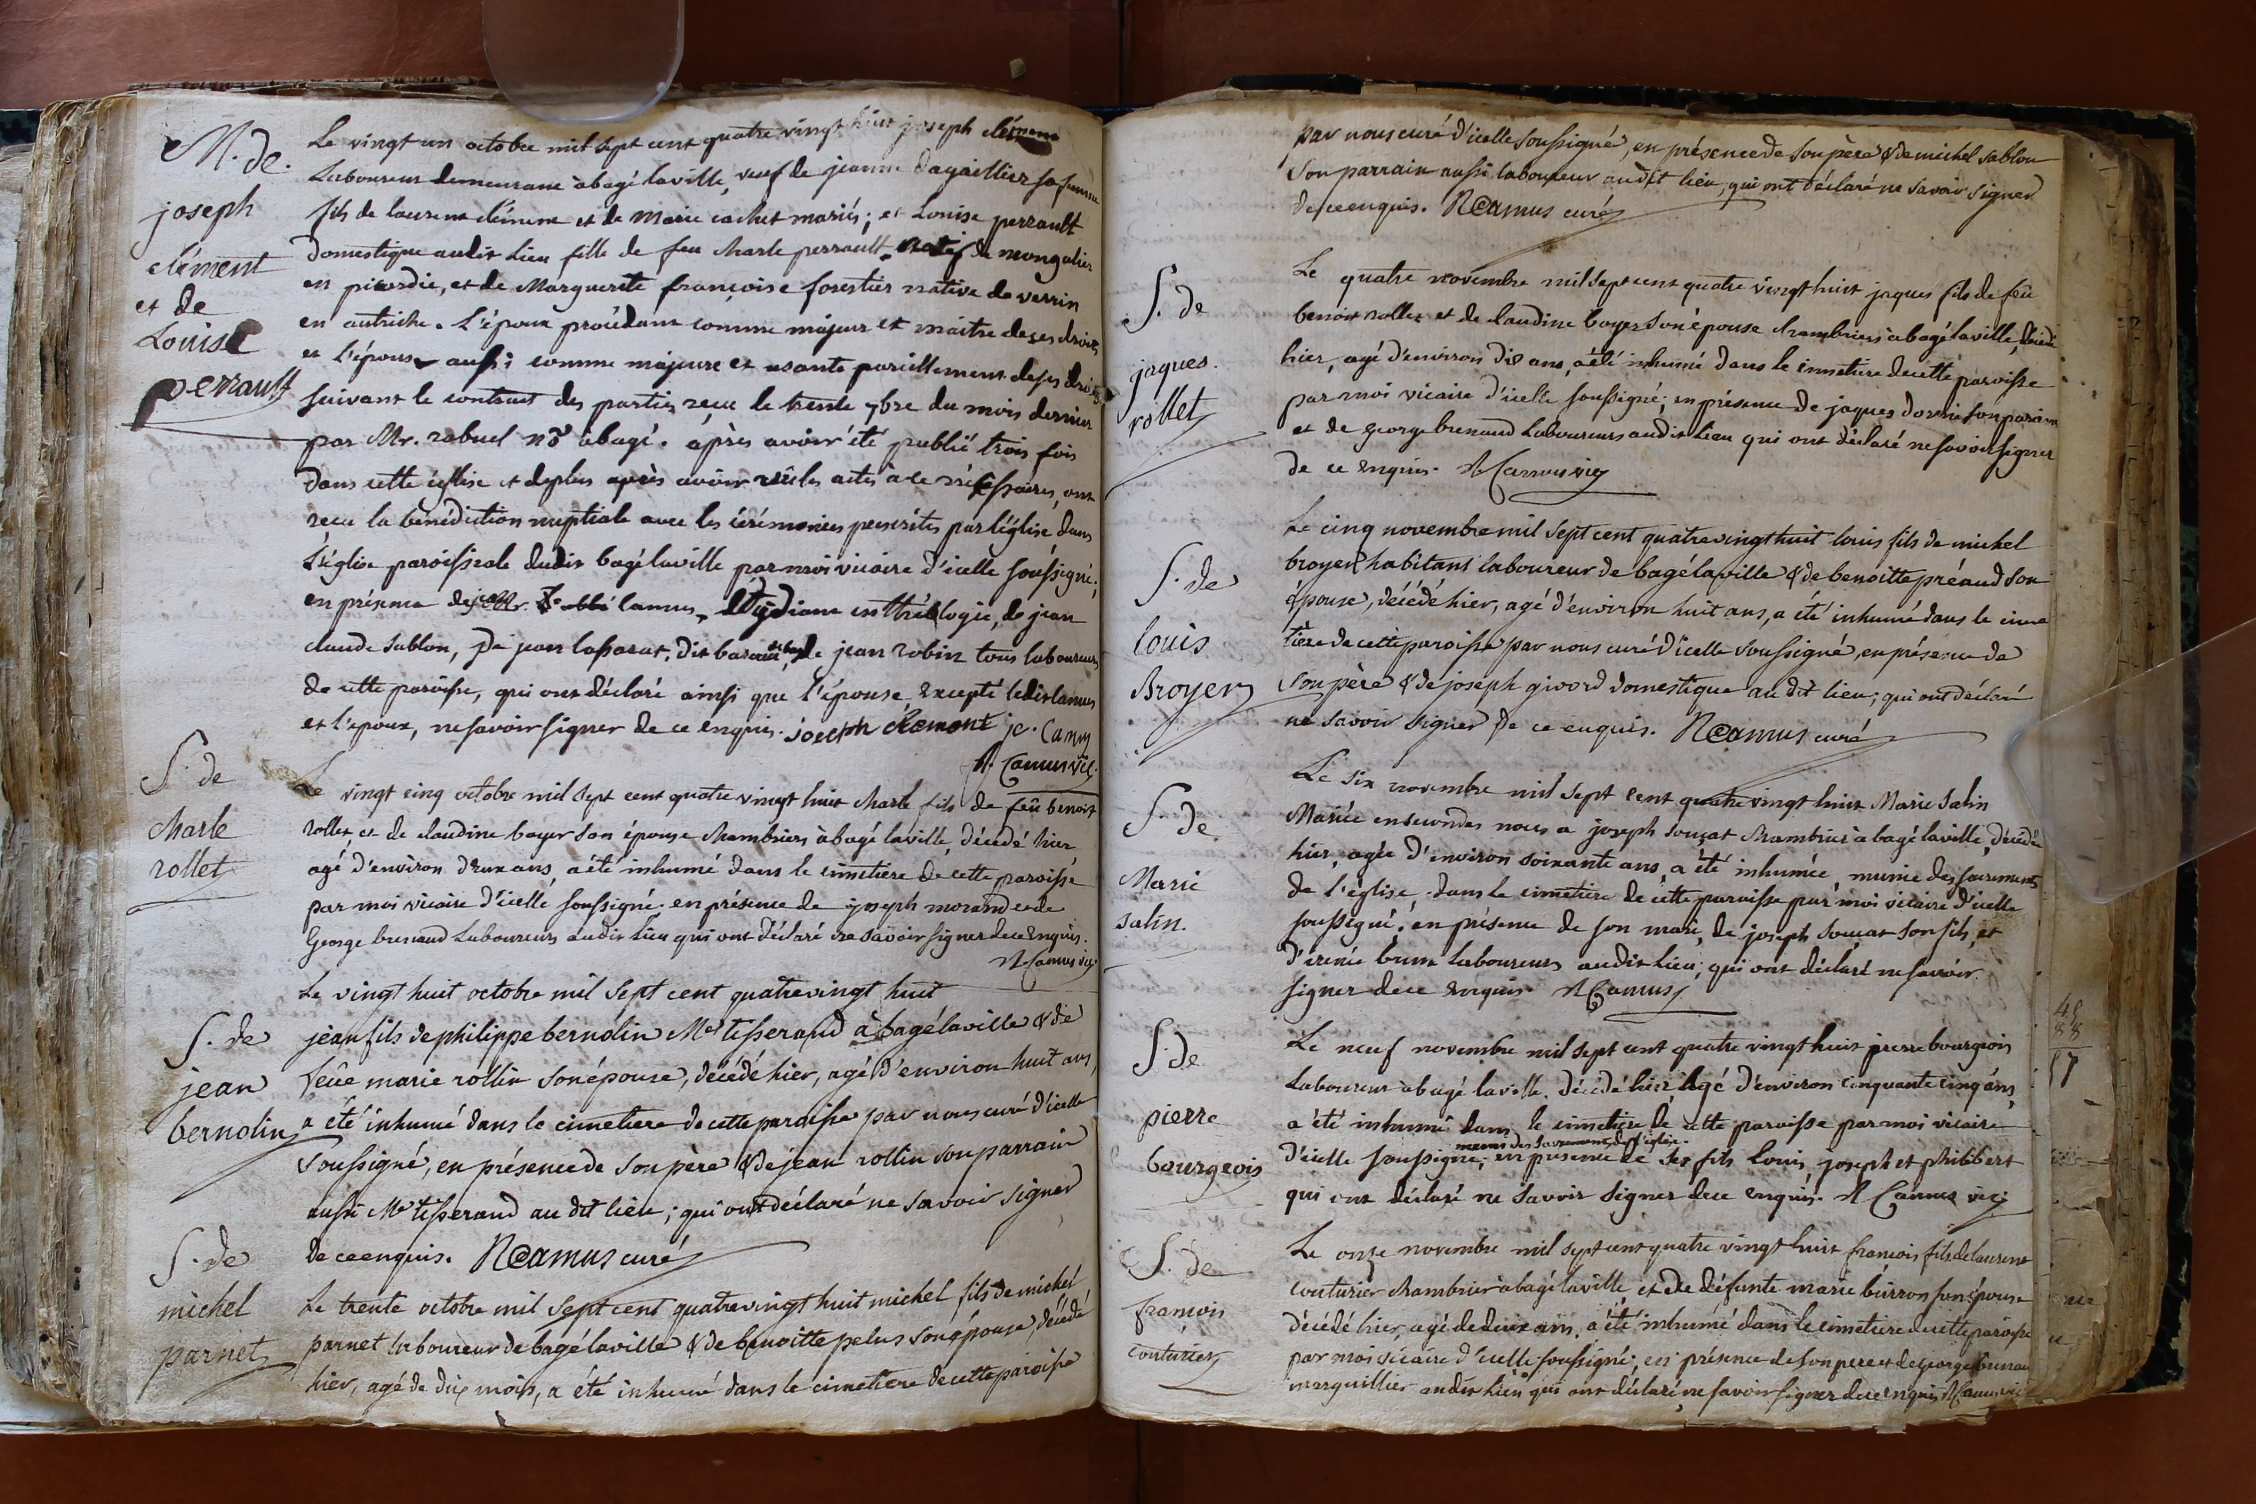 M. de
joseph
clément
et de
Louise
perrault
Le vingt un octobre mil sept cent quatre vingt huit joseph clément
Laboureur demeurant à bagé laville, veuf de jeanne dagaillier sa femme
fils de laurent clément et de Marie cachet mariés; et Louise perrault
domestique audit Lieu fille de feu charle perrault natif de mongalier
en picardie, et de Marguerite françoise forestier native de verrin
en autriche. L'époux procédant comme majeur et maitre de ses droits
et l'épouse aussi comme majeure et usante pareillement de ses droits
suivant le contract des parties recu le trente 7bre du mois dernier
par Mr. rabuel nõ à bagé. après avoir été publié trois fois
dans cette église et deplus après avoir recu les actes à ce nécessaires, ont
recu la bénédiction nuptiale avec les cérémonies prescrites par l'église dans
l'église paroissiale dudit bagé laville par moi vicaire d'icelle soussigné;
en présence de Mr. l'abbé camus, étudiant en théologie, de jean
claude sablon, de jean lassarat, dit de jean robin tous laboureurs
de cette paroisse, qui ont déclaré ainsi que l'épouse, excepté ledit camus
et l'époux, ne savoir signer de ce enquis. joseph clemont jc. Camus
N. Camus vic.
S. de
charle
rollet
Le vingt cinq octobre mil sept cent quatre vingt huit charle fils de feû benoit
rollet et de claudine boyer son épouse chambriers à bagé laville, décédé hier
agé d'environ deux ans, a été inhumé dans le cimetiere de cette paroisse
par moi vicaire d'icelle soussigné. en présence de joseph morand et de
George brenaud Laboureurs audit Lieu qui ont déclaré ne savoir signer de ce enquis.
N Camus vic
S. de
jean
bernolin
Le vingt huit octobre mil sept cent quatre vingt huit
jean fils de philippe bernolin Me tisserand à bagé laville & de
feûe marie rollin son épouse, décédé hier, agé d'environ huit ans,
a été inhumé dans le cimetiere de cette paroisse par nous curé d'icelle
soussigné, en présence de son père & de jean rollin son parrain
aussi Me tisserand au dit lieu; qui ont déclaré ne savoir signer
de ce enquis. N Camus curé
S. de
michel
parnet
Le trente octobre mil sept cent quatre vingt huit michel fils de michel
parnet laboureur de bagé laville & de benoitte pelus son épouse, décédé
hier, agé de dix mois, a été inhumé dans le cimetiere de cette paroisse
par nous curé d'icelle soussigné, en présence de son père & de michel sablon
son parrain aussi laboureur au dit lieu, qui ont déclaré ne savoir signer
de ce enquis. N Camus curé
S. de
jaques
rollet
Le quatre novembre mil sept cent quatre vingt huit jaques fils de feû
benoit rollet et de claudine boyer son épouse chambriers à bagé laville, décédé
hier, agé d'environ dix ans, a été inhumé dans le cimetiere de cette paroisse
par moi vicaire d'icelle soussigné; en présence de jaques son parain
et de george brenaud Laboureurs audit Lieu qui ont déclaré ne savoir signer
de ce enquis. N Camus vic
S. de
louis
Broyer
Le cinq novembre mil sept cent quatre vingt huit louis fils de michel
broyer habitant laboureur de bagé laville & de benoitte préaud son
épouse, décédé hier, agé d'environ huit ans, a été inhumé dans le cime
tière de cette paroisse par nous curé d'icelle soussigné, en présence de
son père & de joseph givord domestique au dit lieu; qui ont déclaré
ne savoir signer de ce enquis. N Camus curé
S. de
Marie
salin.
Le six novembre mil sept cent quatre vingt huit Marie salin
Mariée en secondes noces a joseph souçat chambrier à bagé laville, décédée
hier, agée d'environ soixante ans, a été inhumée, munie des sacrements
de l'église, dans le cimetiere de cette paroisse par moi vicaire d'icelle
soussigné; en présence de son mari, de joseph souçat son fils, et
d'irénée brun laboureurs audit Lieu; qui ont déclaré ne savoir
signer de ce enquis. N Camus
S. de
pierre
bourgeois
Le neuf novembre mil sept cent quatre vingt huit pierre bourgeois
Laboureur a bagé laville. décédé hier agé d'environ cinquante cinq ans,
a été inhumé dans le cimetiere de cette paroisse par moi vicaire
munis des sacrements de l'église.
d'icelle soussigné; en présence de ses fils Louis, joseph et phibbert
qui ont déclaré ne savoir signer de ce enquis. N Camus vic
S. de
francois
couturier
Le onze novembre mil sept cent quatre vingt huit francois fils de laurent
couturier chambrier à bagé laville et de défunte marie buirron son épouse
décédé hier, agé de deux ans, a été inhumé dans le cimetiere de cette paroisse
par moi vicaire d'icelle soussigné; en présence de son pere et de George brenau
marguillier audit Lieu qui ont déclaré ne savoir signer de ce enquis. N Camus vic
48
88
17